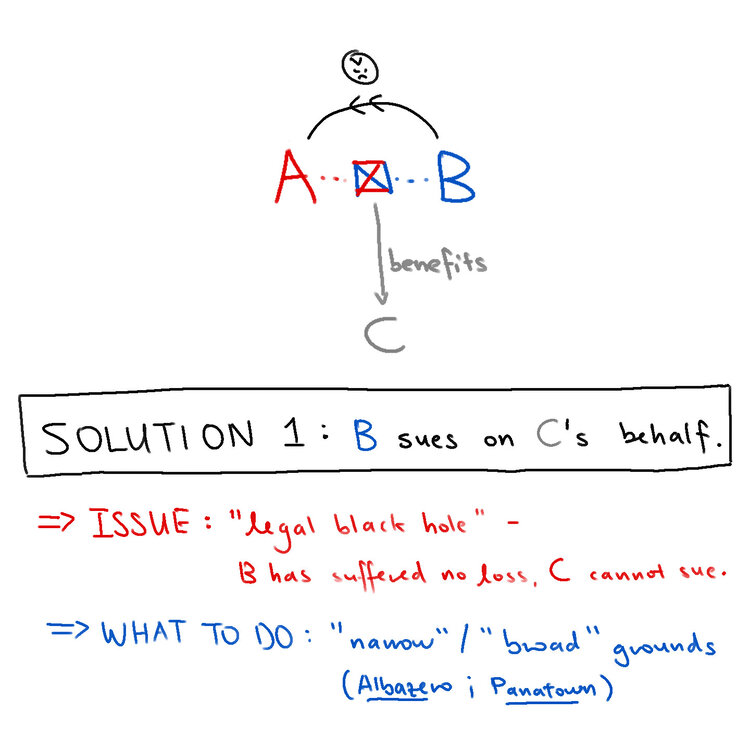 A ... B
benefits
C
SOLUTION 1: B sues on C's behalf.
=> ISSUE: "legal black hole" -
B has suffered no loss, C cannot sue.
=> WHAT TO DO: "narrow" / "broad" grounds
(Albazero ; Panatown)